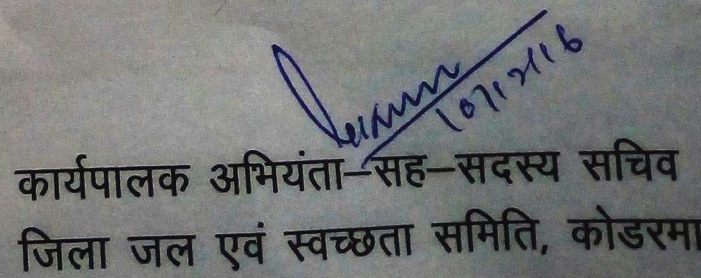 कार्यपालक अभियंता–सह–सदस्य सचिव
जिला जल एवं स्वच्छता समिति, कोडरमा